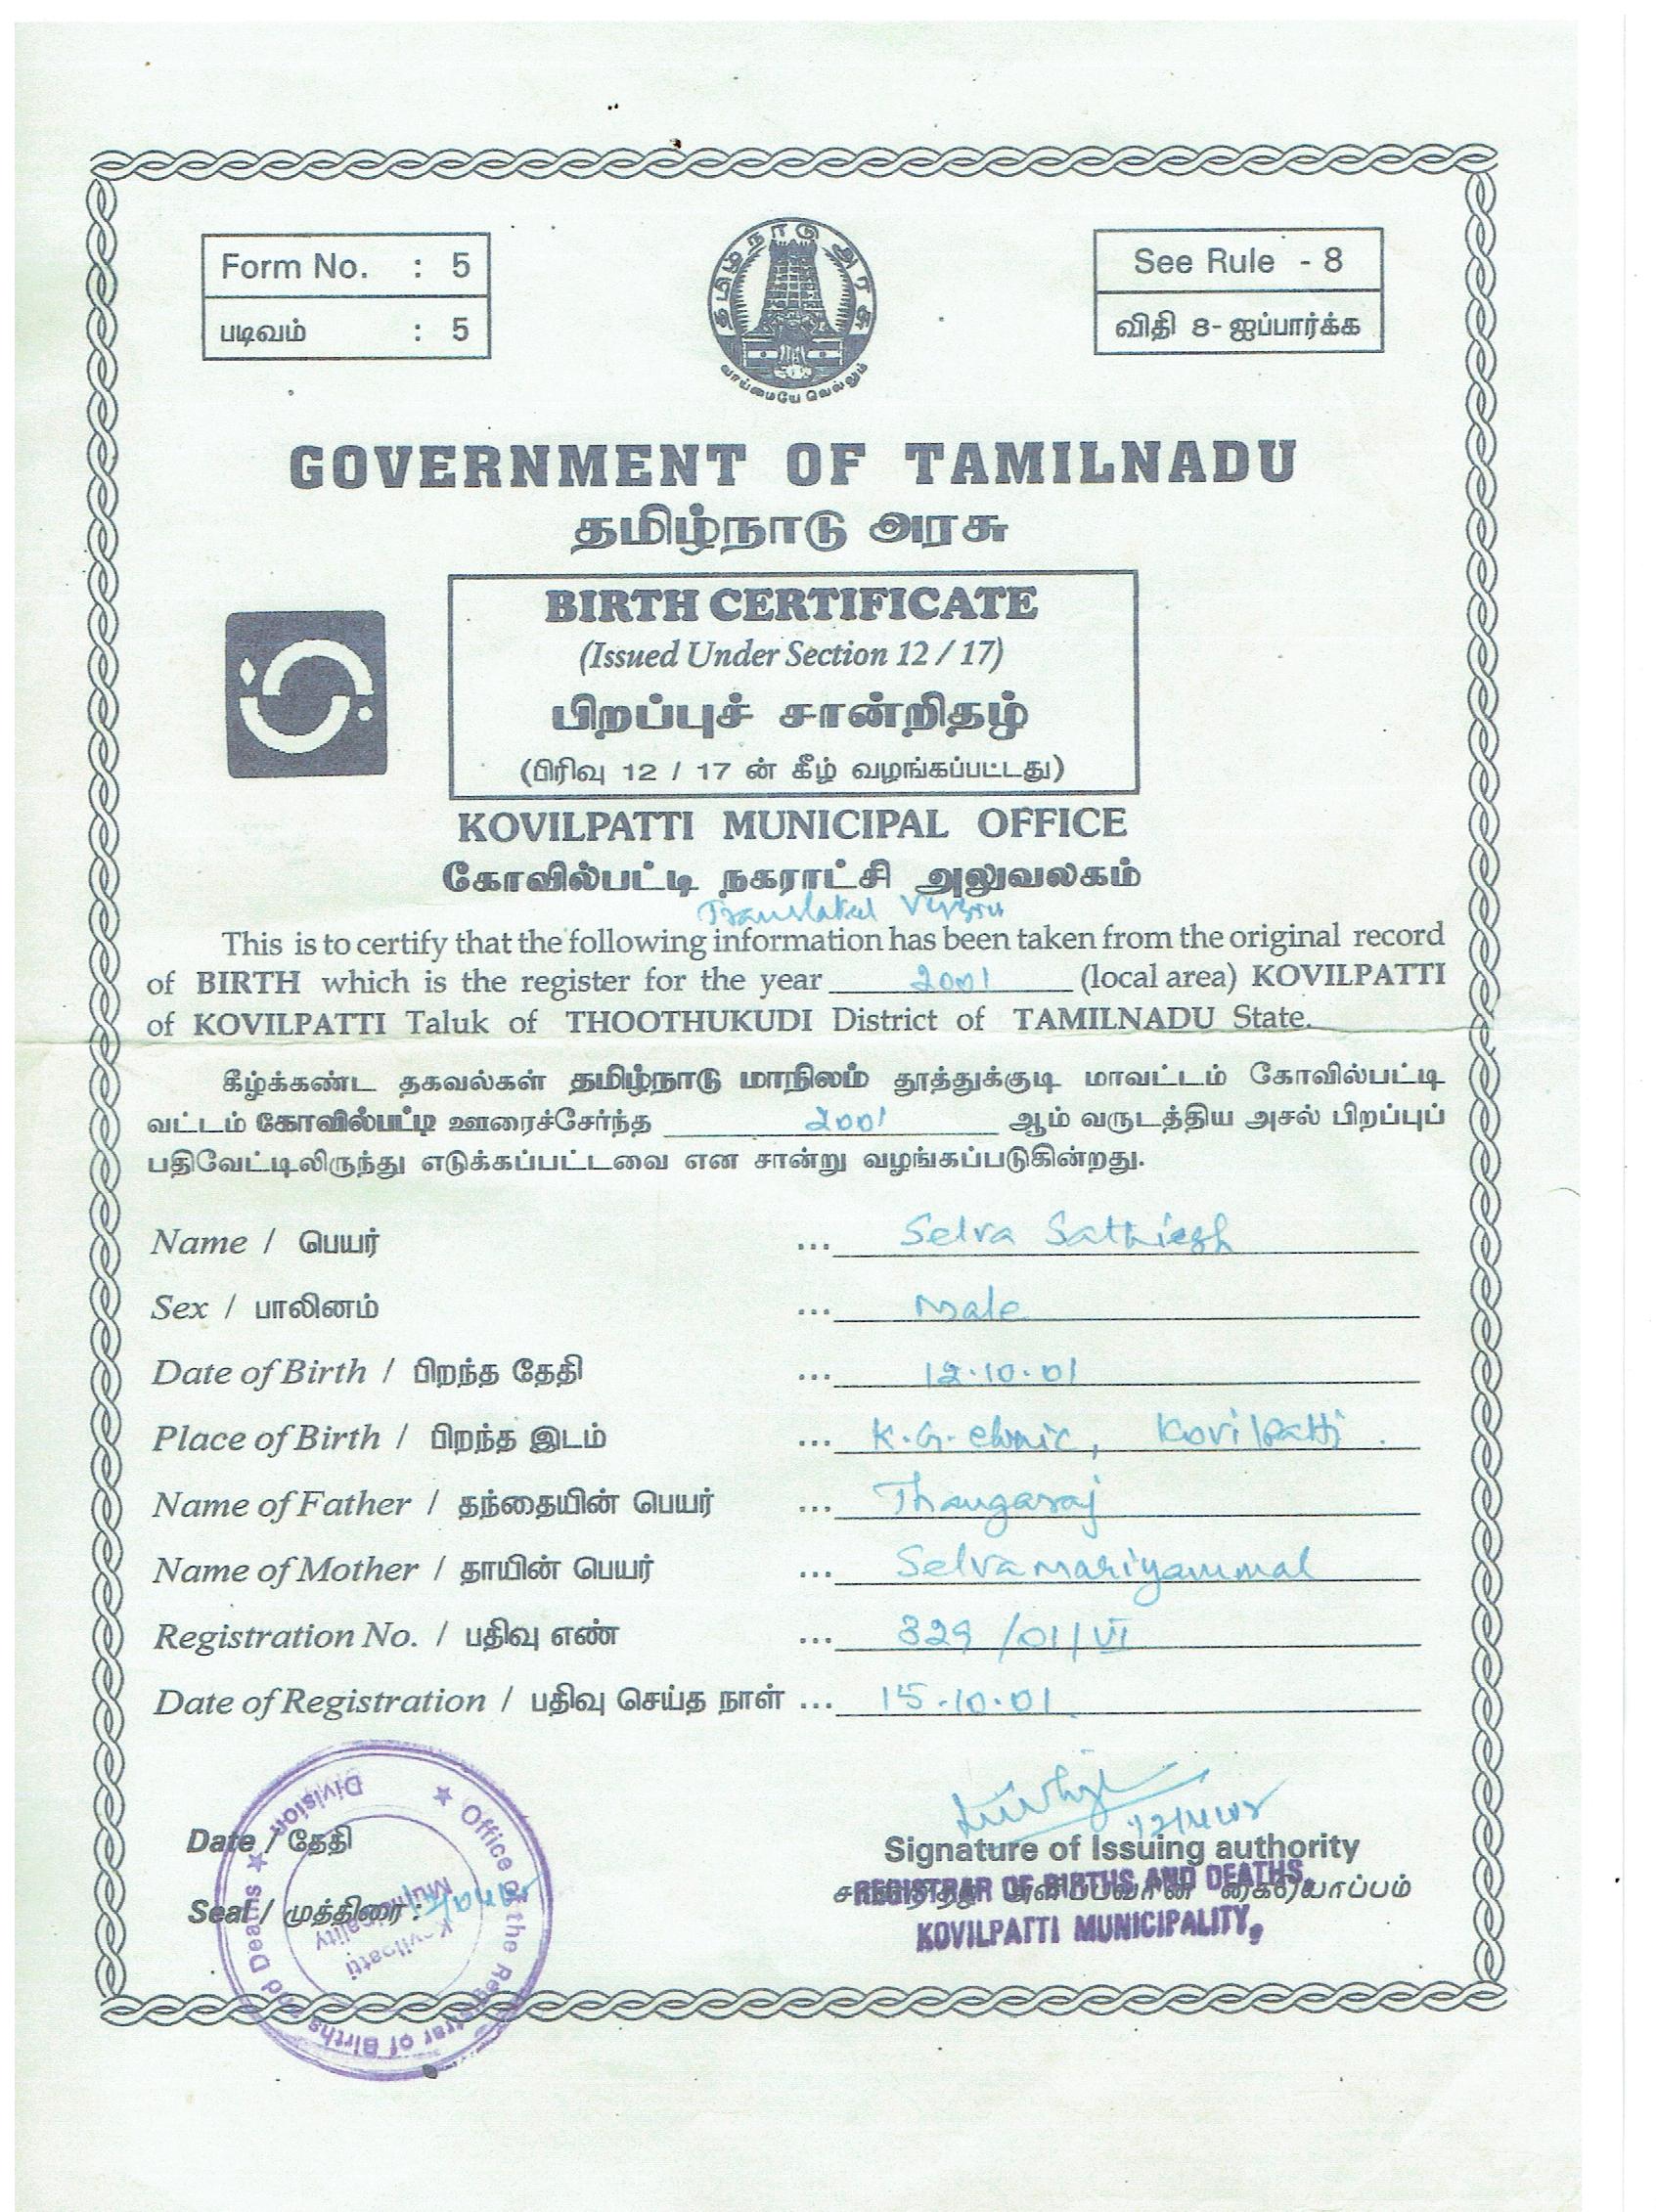 Form No. : 5
படிவம் : 5
தமிழ்நாடு அரசு
வாய்மையே வெல்லும்
See Rule - 8
விதி 8-ஐப்பார்க்க
GOVERNMENT OF TAMILNADU
தமிழ்நாடு அரசு
BIRTH CERTIFICATE
(Issued Under Section 12 / 17)
பிறப்புச் சான்றிதழ்
(பிரிவு 12 / 17 ன் கீழ் வழங்கப்பட்டது)
KOVILPATTI MUNICIPAL OFFICE
கோவில்பட்டி நகராட்சி அலுவலகம்
Translated Version
This is to certify that the following information has been taken from the original record
of BIRTH which is the register for the year 2001 (local area) KOVILPATTI
of KOVILPATTI Taluk of THOOTHUKUDI District of TAMILNADU State.
கீழ்க்கண்ட தகவல்கள் தமிழ்நாடு மாநிலம் தூத்துக்குடி மாவட்டம் கோவில்பட்டி
வட்டம் கோவில்பட்டி ஊரைச்சேர்ந்த 2001 ஆம் வருடத்திய அசல் பிறப்புப்
பதிவேட்டிலிருந்து எடுக்கப்பட்டவை என சான்று வழங்கப்படுகின்றது.
Name / பெயர் ... Selva Sathiesh
Sex / பாலினம் ... Male
Date of Birth / பிறந்த தேதி ... 12.10.01
Place of Birth / பிறந்த இடம் ... K.G. clinic, Kovilpatti.
Name of Father / தந்தையின் பெயர் ... Thangaraj
Name of Mother / தாயின் பெயர் ... Selvamariyammal
Registration No. / பதிவு எண் ... 329 /01/VI
Date of Registration / பதிவு செய்த நாள் ... 15.10.01
Date / தேதி
Seal / முத்திரை :
Office of the Registrar of Births and Deaths ★ Division ★
Kovilpatti
Municipality
Signature of Issuing authority
சான்றிதழ் அளிப்பவரின் கையொப்பம்
REGISTRAR OF BIRTHS AND DEATHS,
KOVILPATTI MUNICIPALITY,